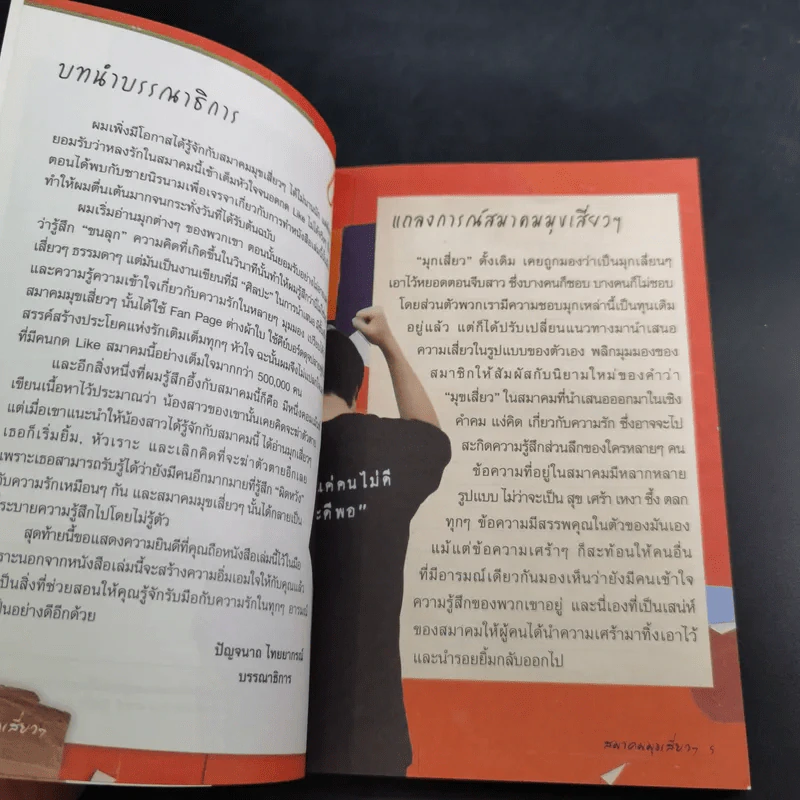 บทนำบรรณาธิการ
ผมเพิ่งมีโอกาสได้รู้จักกับสมาคมมุขเสี่ยวๆ ได้ไม่นานนัก
ยอมรับว่าหลงรักในสมาคมนี้เข้าเต็มหัวใจจนอดกด Like ไม่ได้
ตอนได้พบกับชายนิรนามเพื่อเจรจาเกี่ยวกับการทำหนังสือเล่มนี้
ทำให้ผมตื่นเต้นมากจนกระทั่งวันที่ได้รับต้นฉบับ
ผมเริ่มอ่านมุกต่างๆ ของพวกเขา ตอนนั้นยอมรับอย่าง
ว่ารู้สึก "ขนลุก" ความคิดที่เกิดขึ้นในวินาทีนั้นทำให้ผมรู้สึกว่า
เสี่ยวๆ ธรรมดาๆ แต่มันเป็นงานเขียนที่มี "ศิลปะ" ในการนำเสนอ
และความรู้ความเข้าใจเกี่ยวกับความรักในหลายๆ มุมมอง
สมาคมมุขเสี่ยวๆ นั้นได้ใช้ Fan Page ต่างผ้าใบ ใช้คีย์บอร์ด
สรรค์สร้างประโยคแห่งรักเติมเต็มทุกๆ หัวใจ ฉะนั้นผมจึงไม่
ที่มีคนกด Like สมาคมนี้อย่างเต็มใจมากกว่า 500,000 คน
และอีกสิ่งหนึ่งที่ผมรู้สึกอึ้งกับสมาคมนี้ก็คือ มีหนึ่ง
เขียนเนื้อหาไว้ประมาณว่า น้องสาวของเขานั้นเคยคิดจะฆ่าตัวตาย
แต่เมื่อเขาแนะนำให้น้องสาวได้รู้จักกับสมาคมนี้ ได้อ่านมุกเสี่ยวๆ
เธอก็เริ่มยิ้ม, หัวเราะ และเลิกคิดที่จะฆ่าตัวตายอีกเลย
เพราะเธอสามารถรับรู้ได้ว่ายังมีคนอีกมากมายที่รู้สึก "ผิดหวัง"
กับความรักเหมือนๆ กัน และสมาคมมุขเสี่ยวๆ นั้นได้กลายเป็น
ระบายความรู้สึกไปโดยไม่รู้ตัว
สุดท้ายนี้ขอแสดงความยินดีที่คุณถือหนังสือเล่มนี้ไว้ในมือ
เพราะนอกจากหนังสือเล่มนี้จะสร้างความอิ่มเอมใจให้กับคุณแล้ว
เป็นสิ่งที่ช่วยสอนให้คุณรู้จักรับมือกับความรักในทุกๆ อารมณ์
เป็นอย่างดีอีกด้วย
ปัญจนาถ ไทยยากรณ์
บรรณาธิการ
เสี่ยวๆ
แถลงการณ์สมาคมมุขเสี่ยวๆ
"มุกเสี่ยว" ดั้งเดิม เคยถูกมองว่าเป็นมุกเลี่ยนๆ
เอาไว้หยอดตอนจีบสาว ซึ่งบางคนก็ชอบ บางคนก็ไม่ชอบ
โดยส่วนตัวพวกเรามีความชอบมุกเหล่านี้เป็นทุนเดิม
อยู่แล้ว แต่ก็ได้ปรับเปลี่ยนแนวทางมานำเสนอ
ความเสี่ยวในรูปแบบของตัวเอง พลิกมุมมองของ
สมาชิกให้สัมผัสกับนิยามใหม่ของคำว่า
"มุขเสี่ยว" ในสมาคมที่นำเสนอออกมาในเชิง
คำคม แง่คิด เกี่ยวกับความรัก ซึ่งอาจจะไป
สะกิดความรู้สึกส่วนลึกของใครหลายๆ คน
ข้อความที่อยู่ในสมาคมมีหลากหลาย
รูปแบบ ไม่ว่าจะเป็น สุข เศร้า เหงา ซึ้ง ตลก
ทุกๆ ข้อความมีสรรพคุณในตัวของมันเอง
แม้แต่ข้อความเศร้าๆ ก็สะท้อนให้คนอื่น
ที่มีอารมณ์เดียวกันมองเห็นว่ายังมีคนเข้าใจ
ความรู้สึกของพวกเขาอยู่ และนี่เองที่เป็นเสน่ห์
ของสมาคมให้ผู้คนได้นำความเศร้ามาทิ้งเอาไว้
และนำรอยยิ้มกลับออกไป
แค่คนไม่ดี
ะดีพอ"
สมาคมมุขเสี่ยวๆ 5